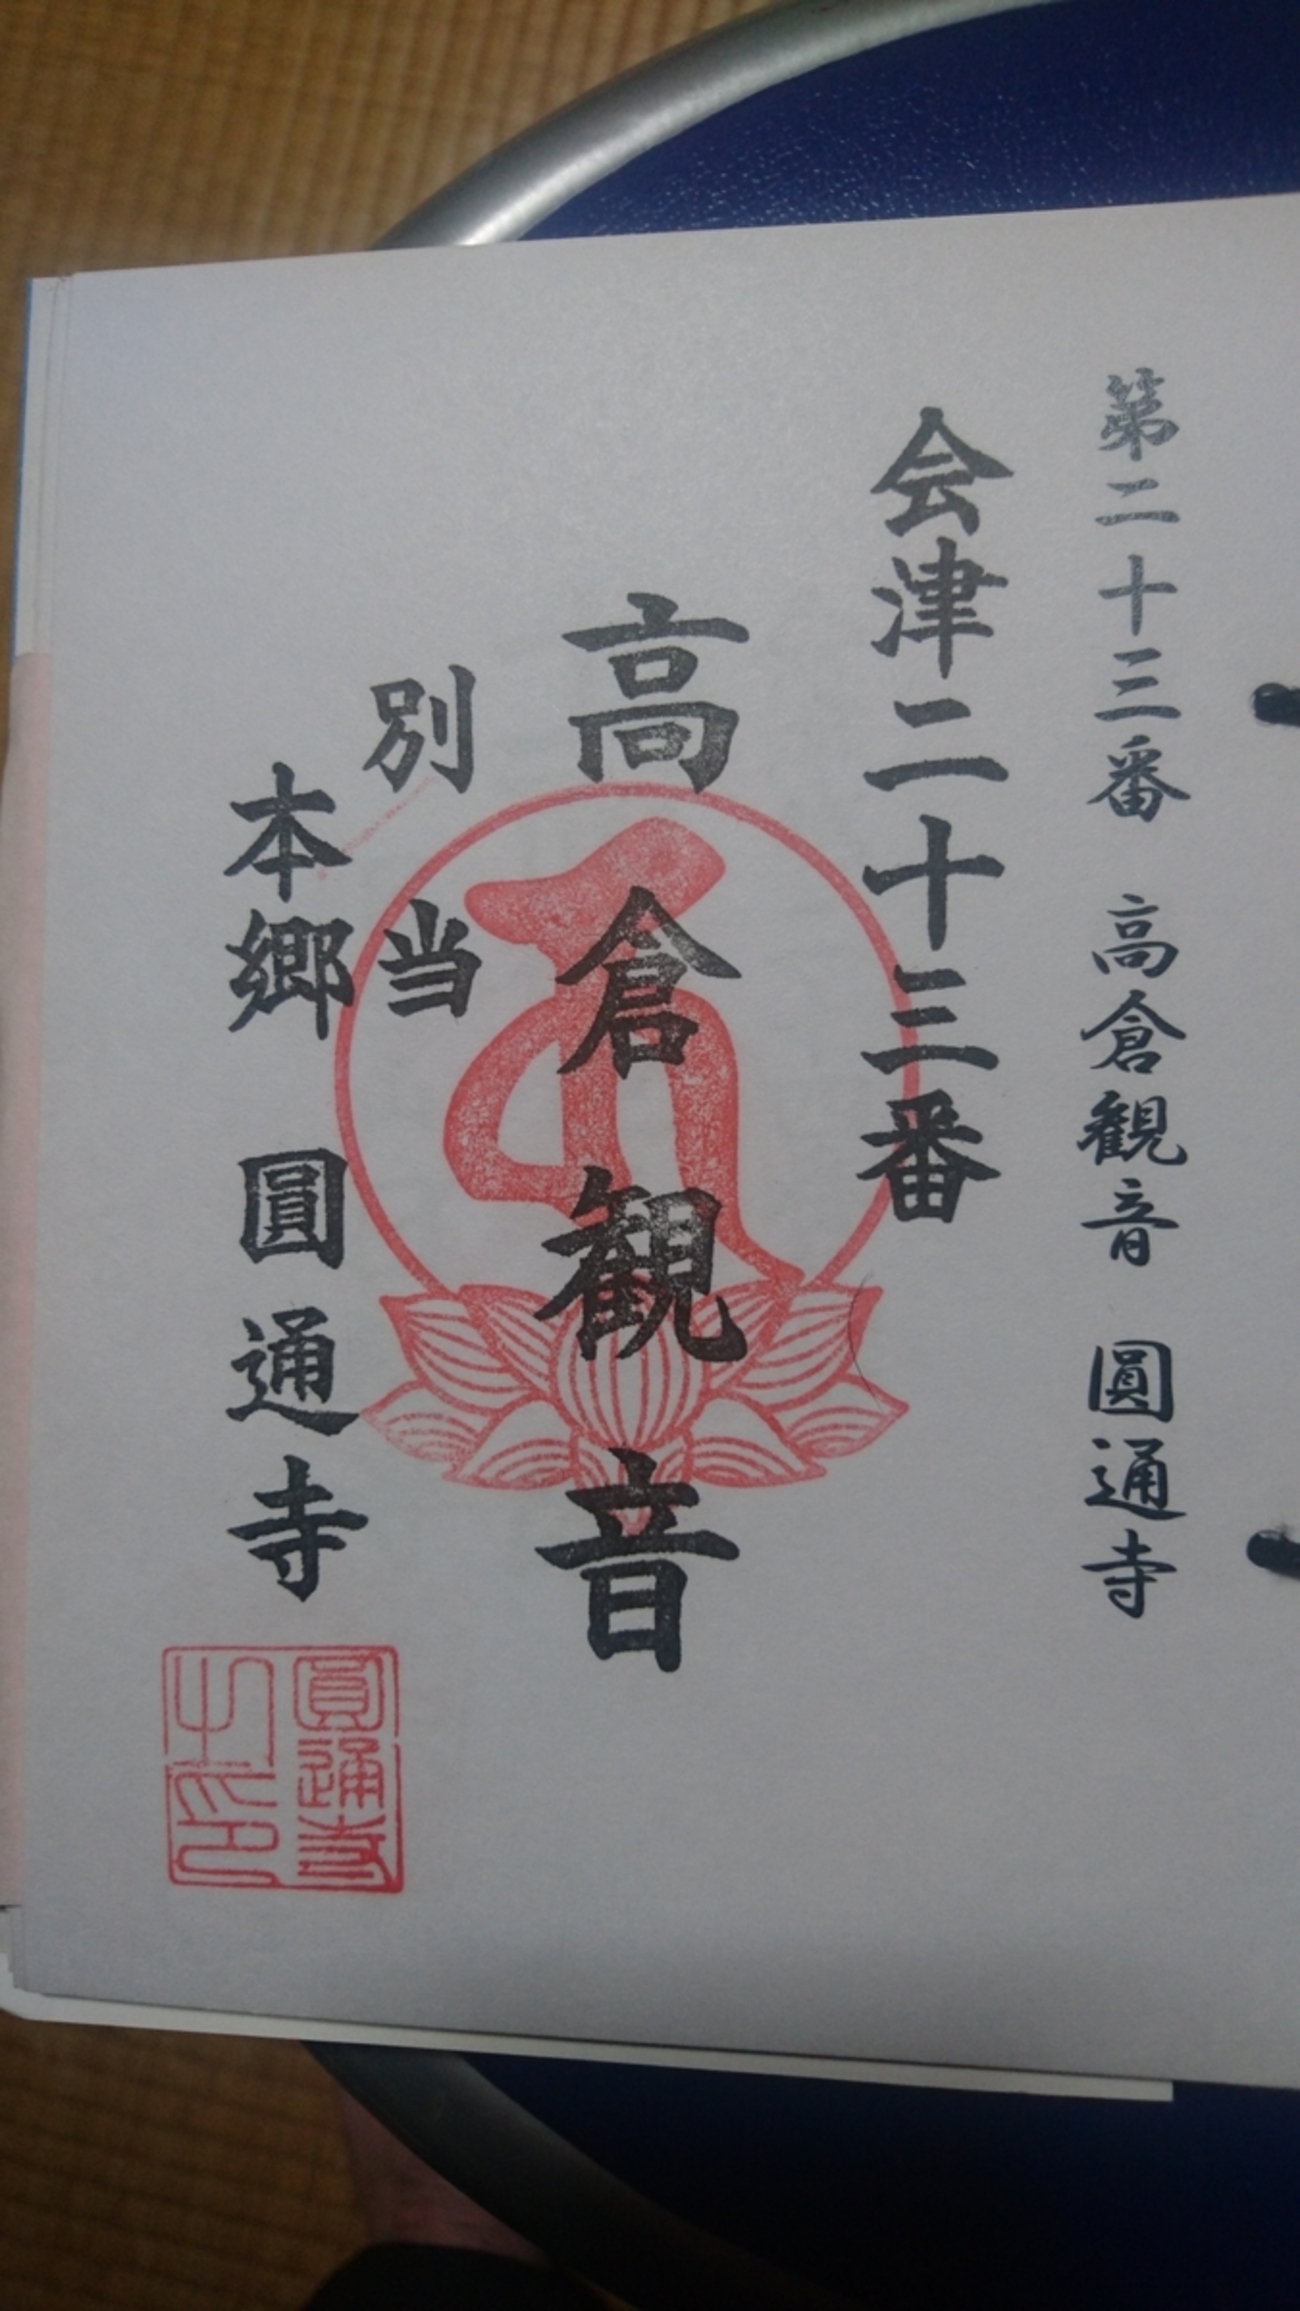 第二十三番 高倉観音 圓通寺
会津二十三番
高倉観音
別当
本郷 圓通寺
圓通寺
印